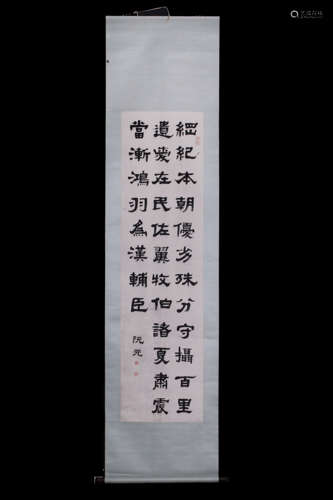 綱紀本朝優劣殊分守攝百里
遺愛在民佐翼牧伯諸夏肅震
當漸鴻羽為漢輔臣
阮元